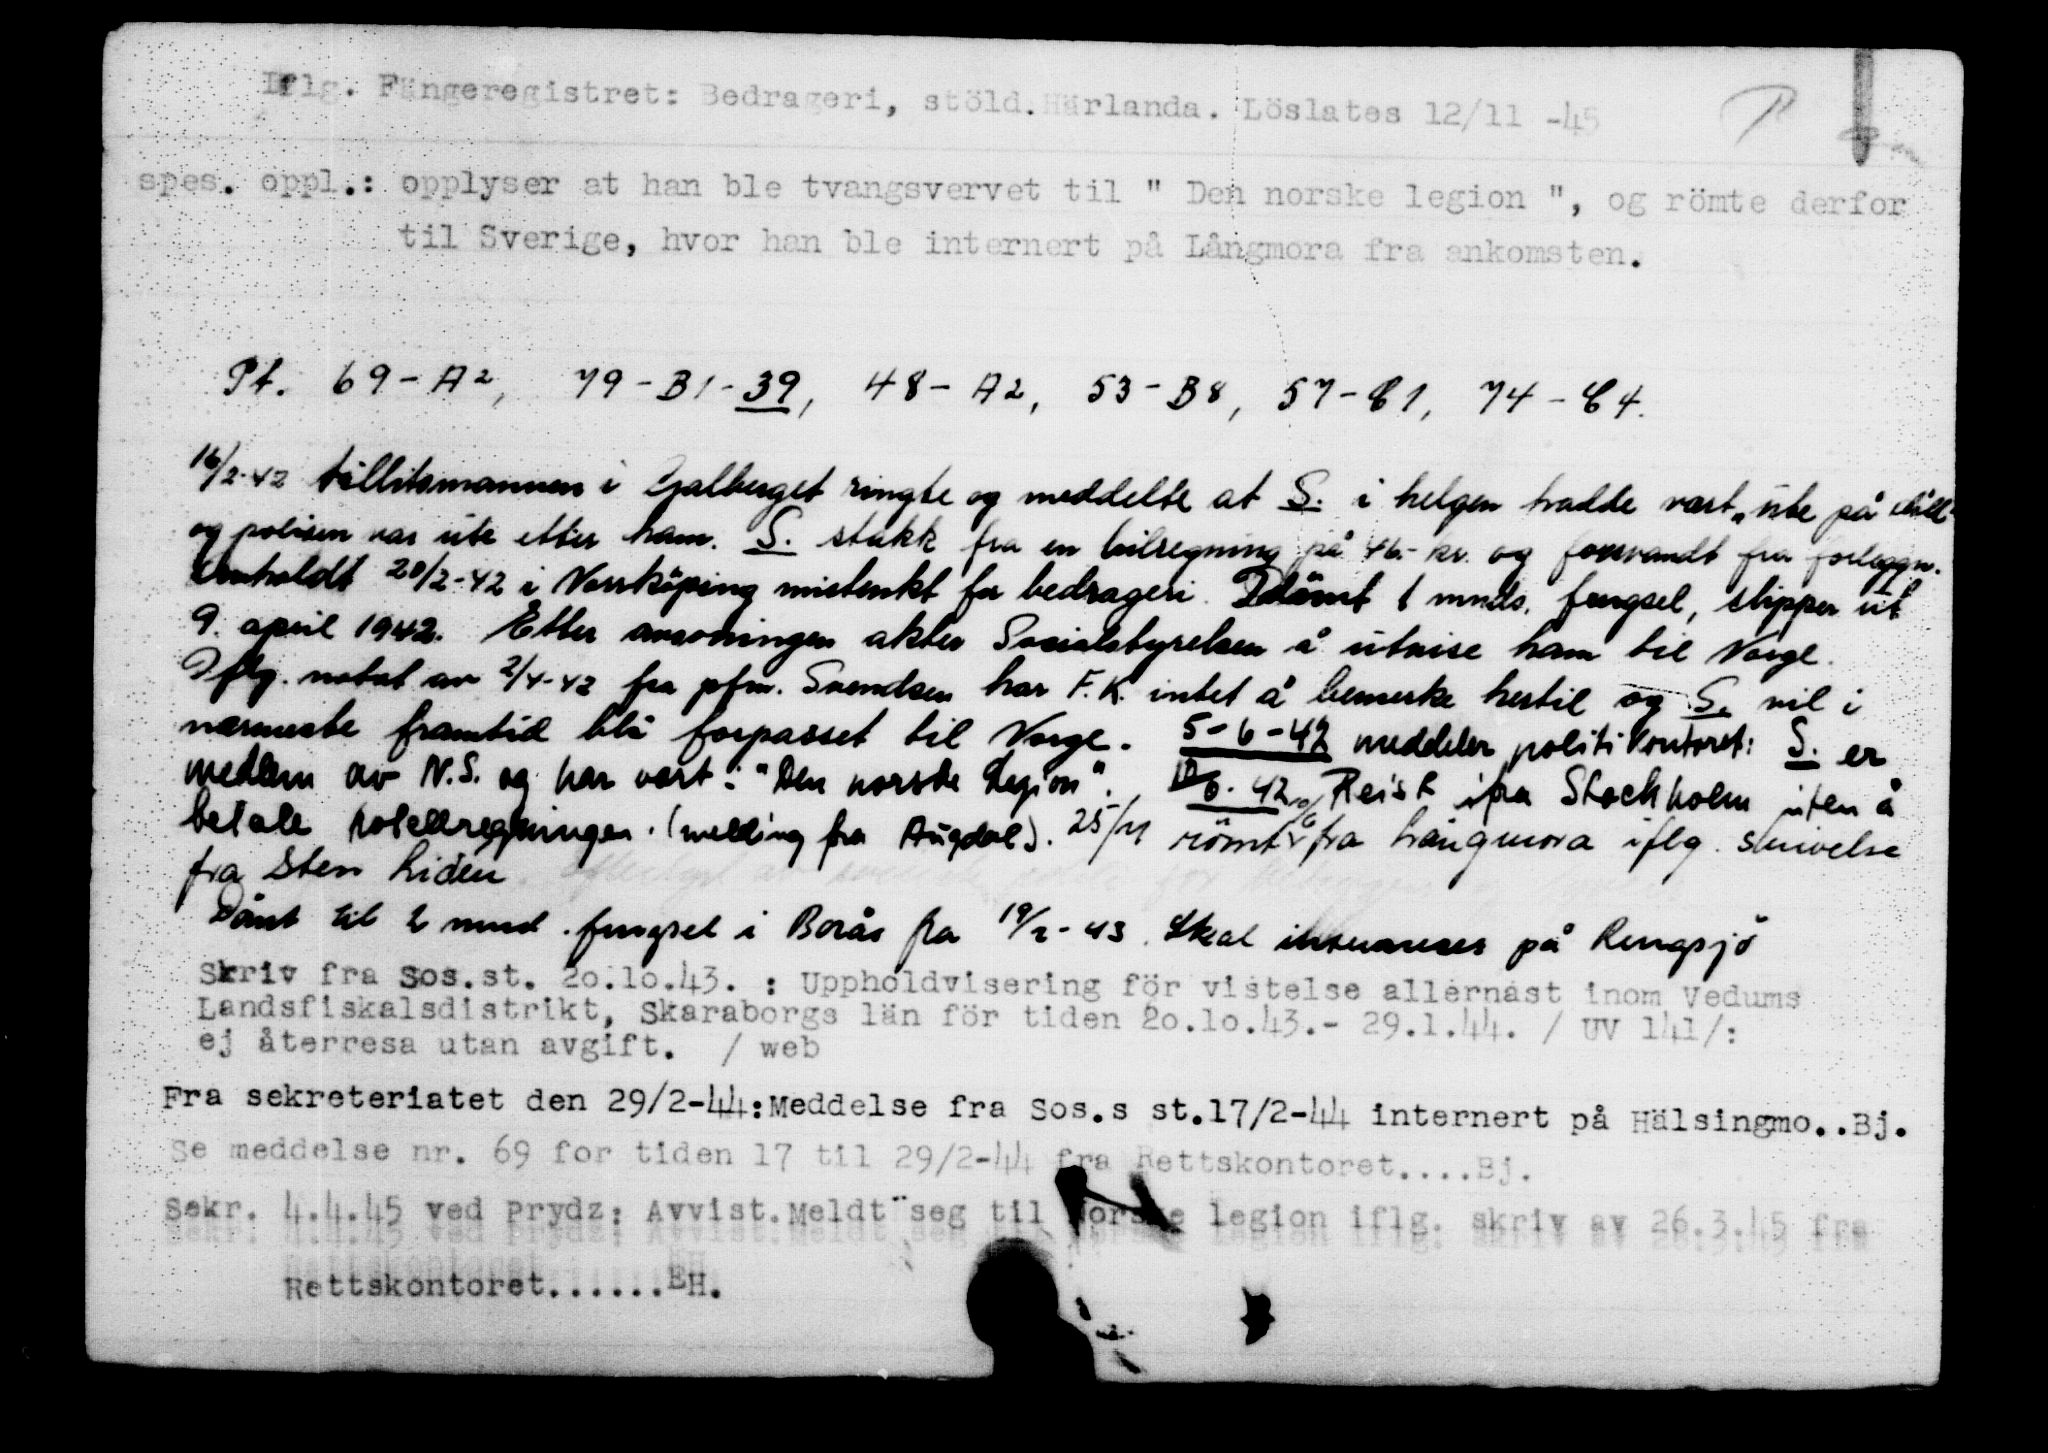 Iflg. Fängeregistret: Bedrageri, stöld. Härlanda. Löslates 12/11 -45
spes. oppl.: opplyser at han ble tvangsvervet til " Den norske legion ", og römte derfor
til Sverige, hvor han ble internert på Långmora fra ankomsten.
Pt. 69-A2, 79-B1-39, 48-A2, 53-B8, 57-C1, 74-C4.
16/2-42 tillitsmannen i Galberget ringte og meddelte at S. i helgen hadde vært ute på
og polisen var ute etter ham. S. stakk fra en bilregning på 46.- kr. og forsvandt fra forleggn.
Anholdt 20/2-42 i Norrköping mistenkt for bedrageri. Idömt 1 mnds. fengsel, slipper ut
9. april 1942. Etter soningen akter Socialstyrelsen å utvise ham til Norge.
Iflg. notat av 2/4-42 fra pfm. Svendsen har F.K. intet å bemerke hertil og S. vil i
nærmeste framtid bli forpasset til Norge. 5-6-42 meddeler politikontoret: S. er
medlem av N.S. og har vært i "Den norske Legion". 6.42 Reist ifra Stockholm uten å
betale hotellregningen. (melding fra Augdal). 25/11 römt fra Långmora iflg. skrivelse
fra Sten Liden
Dömt til 2 mnd. fengsel i Borås fra 19/2-43. Skal interneres på Rengsjö
Skriv fra Sos.st. 20.10.43. : Uppholdvisering för vistelse allernäst inom Vedums
Landsfiskalsdistrikt, Skaraborgs län för tiden 20.10.43.- 29.1.44. / UV 141/:
ej återresa utan avgift. / web
Fra sekreteriatet den 29/2-44:Meddelse fra Sos.s st.17/2-44 internert på Hälsingmo..Bj.
Se meddelse nr. 69 for tiden 17 til 29/2-44 fra Rettskontoret....Bj.
Sekr. 4.4.45 ved Prydz: Avvist.Meldt seg til Norske legion iflg. skriv av 26.3.45 fra
Rettskontoret......EH.